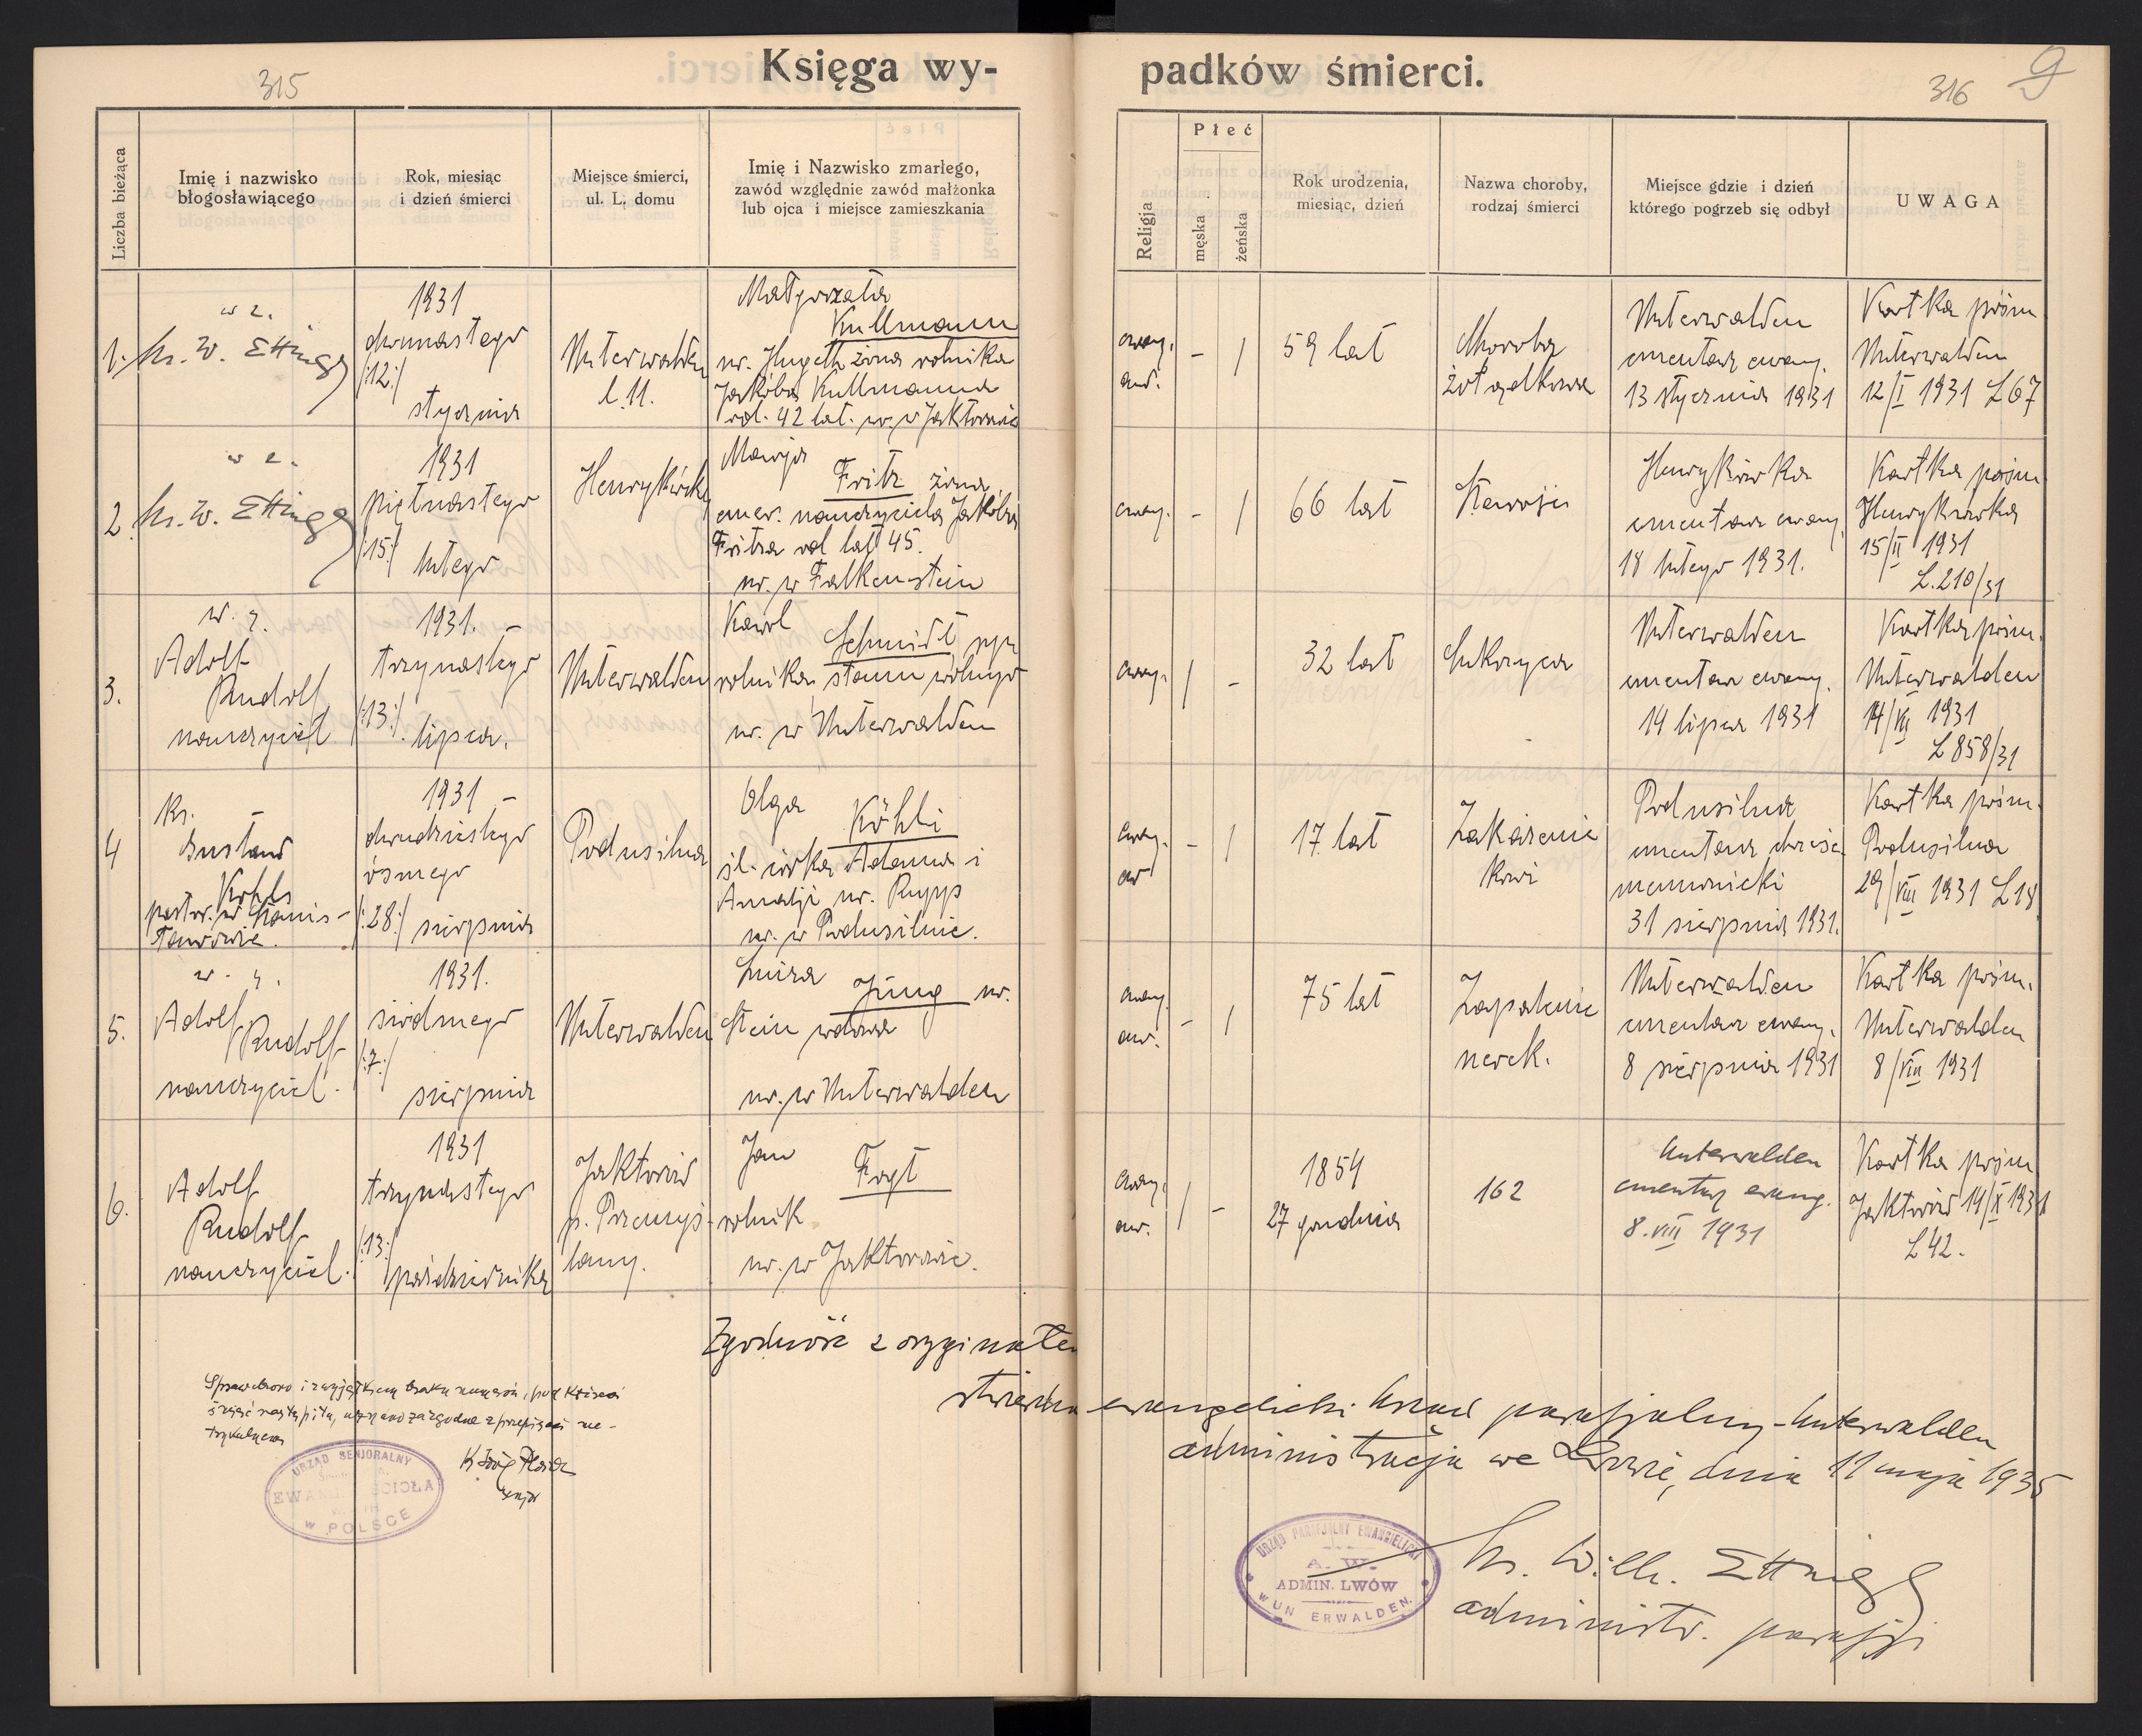 315
Księga wy-
padków śmierci.
316
9
Liczba bieżąca
Imię i nazwisko
błogosławiącego
Rok, miesiąc
i dzień śmierci
Miejsce śmierci,
ul. L. domu
Imię i Nazwisko zmarłego,
zawód względnie zawód małżonka
lub ojca i miejsce zamieszkania
Religja
Płeć
męska
żeńska
Rok urodzenia,
miesiąc, dzień
Nazwa choroby,
rodzaj śmierci
Miejsce gdzie i dzień
którego pogrzeb się odbył
UWAGA
1.
w z.
ks. W. Ettinger
1931
dwunastego
/:12:/
stycznia
Unterwalden
l. 11.
Małgorzata
Kullmann
ur. żona rolnika
Jakóba Kullmanna
od. 42 lat. ur. w Jaktorowie
ewang.
aw.
- /
59 lat
Choroba
żołądkowa
Unterwalden
cmentarz ewang.
13 stycznia 1931
Kartka pośm.
Unterwalden
12/I 1931 L 67
2.
w z.
ks. W. Ettinger
1931
piętnastego
/:15:/
lutego
Henrykówka
Marja
Fritz żona
emer. nauczyciela Jakóba
Fritza od lat 45.
ur. w Falkenstein
ewang.
- /
66 lat
Henrykówka
cmentarz ewang.
18 lutego 1931.
Kartka pośm.
Henrykówka
15/II 1931
L. 210/31
3.
w. z.
Adolf
Rudolf
nauczyciel
1931. -
trzynastego
/:13:/
lipca.
Unterwalden
Karol
Schmidt syn
rolnika stanu wolnego
ur. w Unterwalden
ewang.
/ -
32 lat
Cukrzyca
Unterwalden
cmentarz ewang.
14 lipca 1931
Kartka pośm.
Unterwalden
14/VII 1931
L 858/31
4
Ks.
Gustaw
Kohls
pastor. w Stanis-
ławowie.
1931 -
dwudziestego
ósmego
/:28:/ sierpnia
Podusilna
Olga
Köhli
śl. córka Adama i
Amalji ur. Rupp
ur. w Podusilnie.
ewang.
aw
- /
17 lat
Zakażenie
krwi
Podusilna
cmentarz chrześc.
mennonicki
31 sierpnia 1931.
Kartka pośm.
Podusilna
29/VIII 1931 L 18
5.
w. z.
Adolf
Rudolf
nauczyciel.
1931.
siódmego
/:7:/
sierpnia
Unterwalden
Luiza
Jüng ur.
Stein wdowa
ur. w Unterwalden
ewang.
aw.
- /
75 lat
Zapalenie
nerek.
Unterwalden
cmentarz ewang.
8 sierpnia 1931
Kartka pośm.
Unterwalden
8/VIII 1931
6.
Adolf
Rudolf
nauczyciel.
1931
trzynastego
/:13:/
października
Jaktorów
p. Przemyś-
lany.
Jan
rolnik
ur. w Jaktorowie.
ewang.
aw.
/ -
1854
27 grudnia
162
Unterwalden
cmentarz ewang.
8. VIII 1931
Kartka pośm.
Jaktorów 14/X 1931
L 42.
Zgodność z oryginałem
stwierdza ewangelicki Urząd parafjalny-Unterwalden
administracja we Lwowie, dnia 11 maja 1935
Sprawdzono i z wyjątkiem braku numerów, pod któremi
śmierć nastąpiła, uznano za zgodne z przepisami me-
trykalnemi
URZĄD SENJORALNY
EWANG. KOŚCIOŁA
W POLSCE
URZĄD PARAFJALNY EWANGIELICKI
A. W.
ADMIN. LWÓW
W UNTERWALDEN.
ks. Wilh. Ettinger
administr. parafji